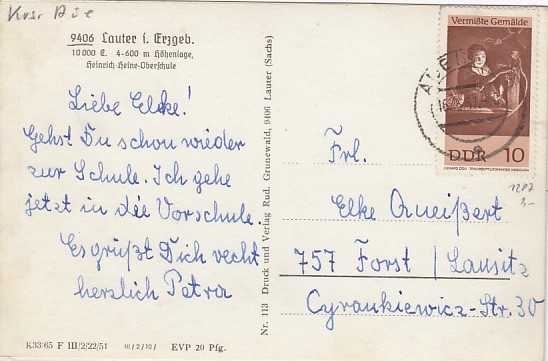 Krsr Aue
9406 Lauter i. Erzgeb.
10 000 E. 4-600 m Höhenlage,
Heinrich-Heine-Oberschule
Liebe Elke!
Gehst Du schon wieder
zur Schule. Ich gehe
jetzt in die Vorschule.
Es grüßt Dich recht
herzlich Petra
K33/65 F III/2/22/51 III/2/10/ EVP 20 Pfg.
Nr. 113 Druck und Verlag Rud. Grunewald, 9406 Lauter (Sachs)
Vermißte Gemälde
DDR 10
Frl.
Elke Queißert
757 Forst / Lausitz
Cyrankiewicz-Str. 30